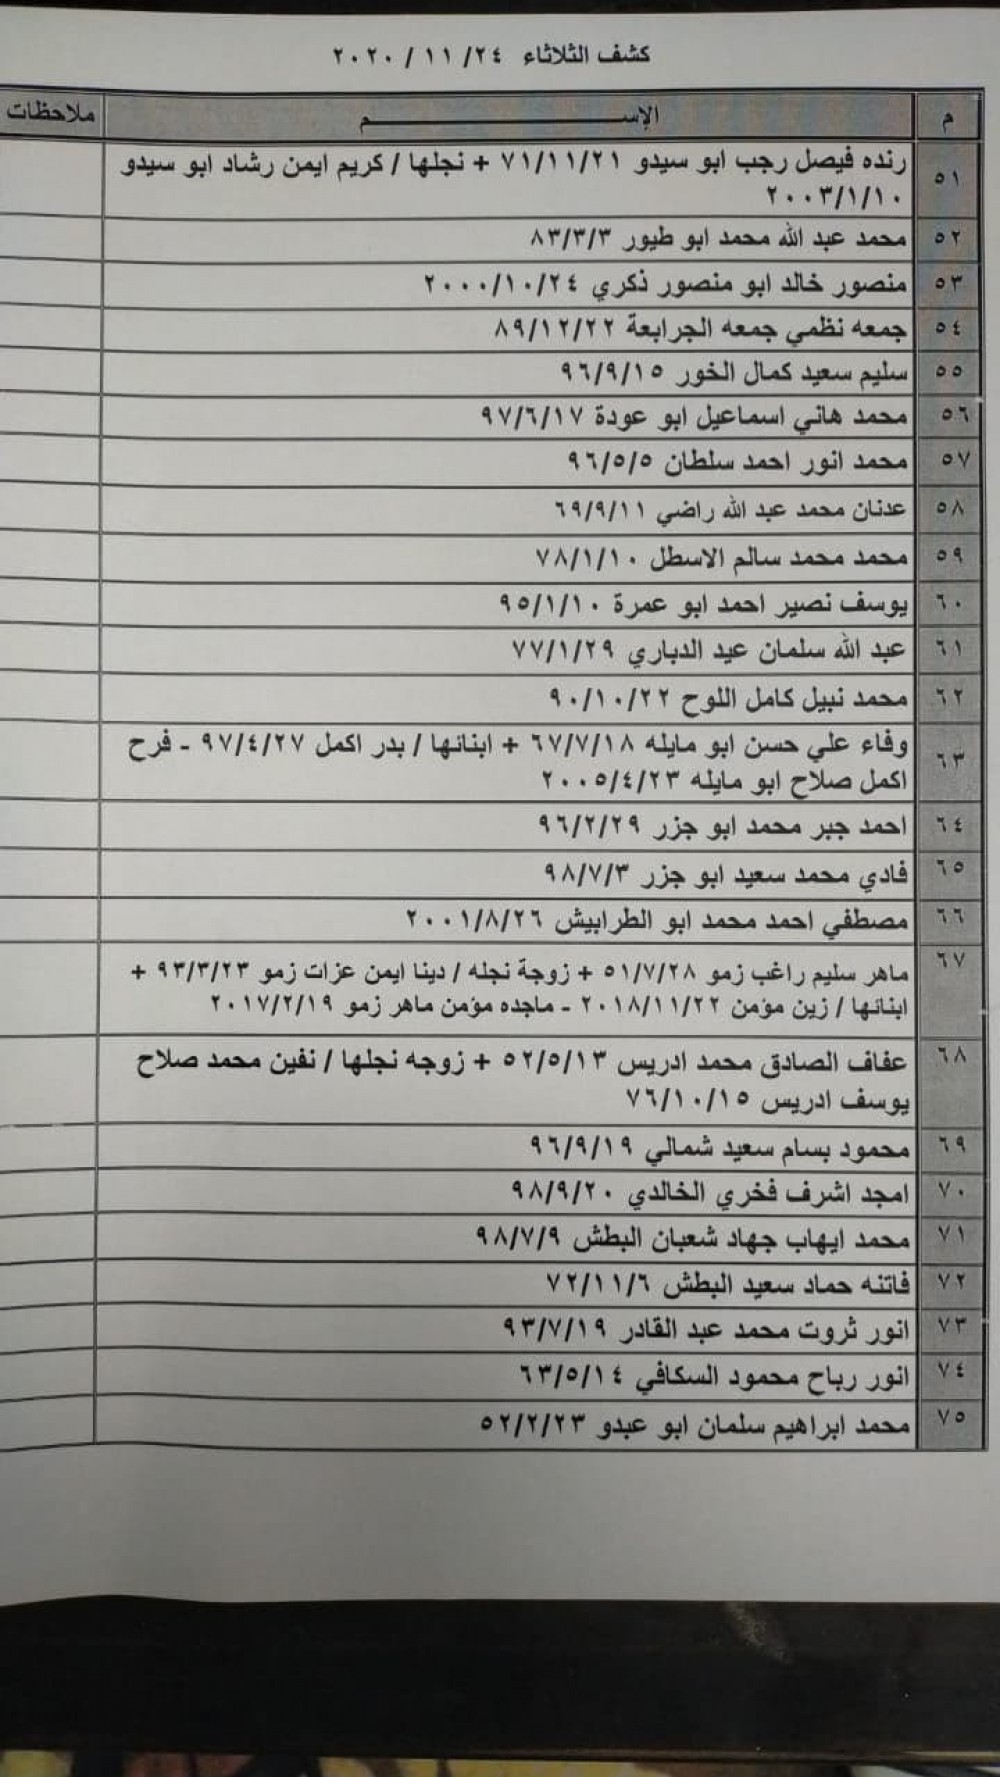 كشف الثلاثاء ٢٤/ ١١ / ٢٠٢٠
م الإســـم ملاحظات
٥١ رنده فيصل رجب ابو سيدو ٧١/١١/٢١ + نجلها / كريم ايمن رشاد ابو سيدو
٢٠٠٣/١/١٠
٥٢ محمد عبد الله محمد ابو طيور ٨٣/٣/٣
٥٣ منصور خالد ابو منصور ذكري ٢٠٠٠/١٠/٢٤
٥٤ جمعه نظمي جمعه الجرابعة ٨٩/١٢/٢٢
٥٥ سليم سعيد كمال الخور ٩٦/٩/١٥
٥٦ محمد هاني اسماعيل ابو عودة ٩٧/٦/١٧
٥٧ محمد انور احمد سلطان ٩٦/٥/٥
٥٨ عدنان محمد عبد الله راضي ٦٩/٩/١١
٥٩ محمد محمد سالم الاسطل ٧٨/١/١٠
٦٠ يوسف نصير احمد ابو عمرة ٩٥/١/١٠
٦١ عبد الله سلمان عيد الدباري ٧٧/١/٢٩
٦٢ محمد نبيل كامل اللوح ٩٠/١٠/٢٢
٦٣ وفاء علي حسن ابو مايله ٦٧/٧/١٨ + ابنائها / بدر اكمل ٩٧/٤/٢٧ - فرح
اكمل صلاح ابو مايله ٢٠٠٥/٤/٢٣
٦٤ احمد جبر محمد ابو جزر ٩٦/٢/٢٩
٦٥ فادي محمد سعيد ابو جزر ٩٨/٧/٣
٦٦ مصطفي احمد محمد ابو الطرابيش ٢٠٠١/٨/٢٦
٦٧ ماهر سليم راغب زمو ٥١/٧/٢٨ + زوجة نجله / دينا ايمن عزات زمو ٩٣/٣/٢٣ +
ابنائها / زين مؤمن ٢٠١٨/١١/٢٢ - ماجده مؤمن ماهر زمو ٢٠١٧/٢/١٩
٦٨ عفاف الصادق محمد ادريس ٥٢/٥/١٣ + زوجه نجلها / نفين محمد صلاح
يوسف ادريس ٧٦/١٠/١٥
٦٩ محمود بسام سعيد شمالي ٩٦/٩/١٩
٧٠ امجد اشرف فخري الخالدي ٩٨/٩/٢٠
٧١ محمد ايهاب جهاد شعبان البطش ٩٨/٧/٩
٧٢ فاتنه حماد سعيد البطش ٧٢/١١/٦
٧٣ انور ثروت محمد عبد القادر ٩٣/٧/١٩
٧٤ انور رباح محمود السكافي ٦٣/٥/١٤
٧٥ محمد ابراهيم سلمان ابو عبدو ٥٢/٢/٢٣